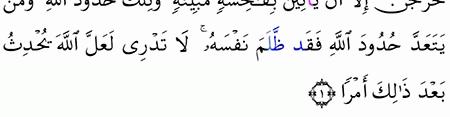 يَخْرُجْنَ إِلَّآ أَن يَأْتِينَ بِفَٰحِشَةٍۢ مُّبَيِّنَةٍۢ ۚ وَتِلْكَ حُدُودُ ٱللَّهِ ۚ وَمَن
يَتَعَدَّ حُدُودَ ٱللَّهِ فَقَد ظَّلَمَ نَفْسَهُۥ ۚ لَا تَدْرِى لَعَلَّ ٱللَّهَ يُحْدِثُ
بَعْدَ ذَٰلِكَ أَمْرًۭا ۝١